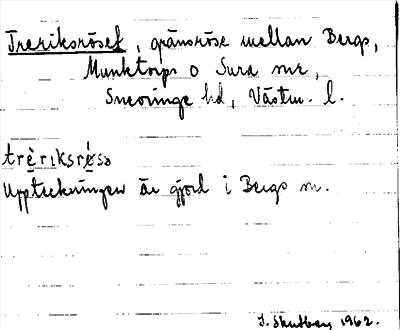 Treriksröset, gränsröse mellan Bergs,
Munktorps o Sura snr,
Snevringe hd, Västm. l.
trèriksrø̀sə
Uppteckningen är gjord i Bergs sn.
1962.